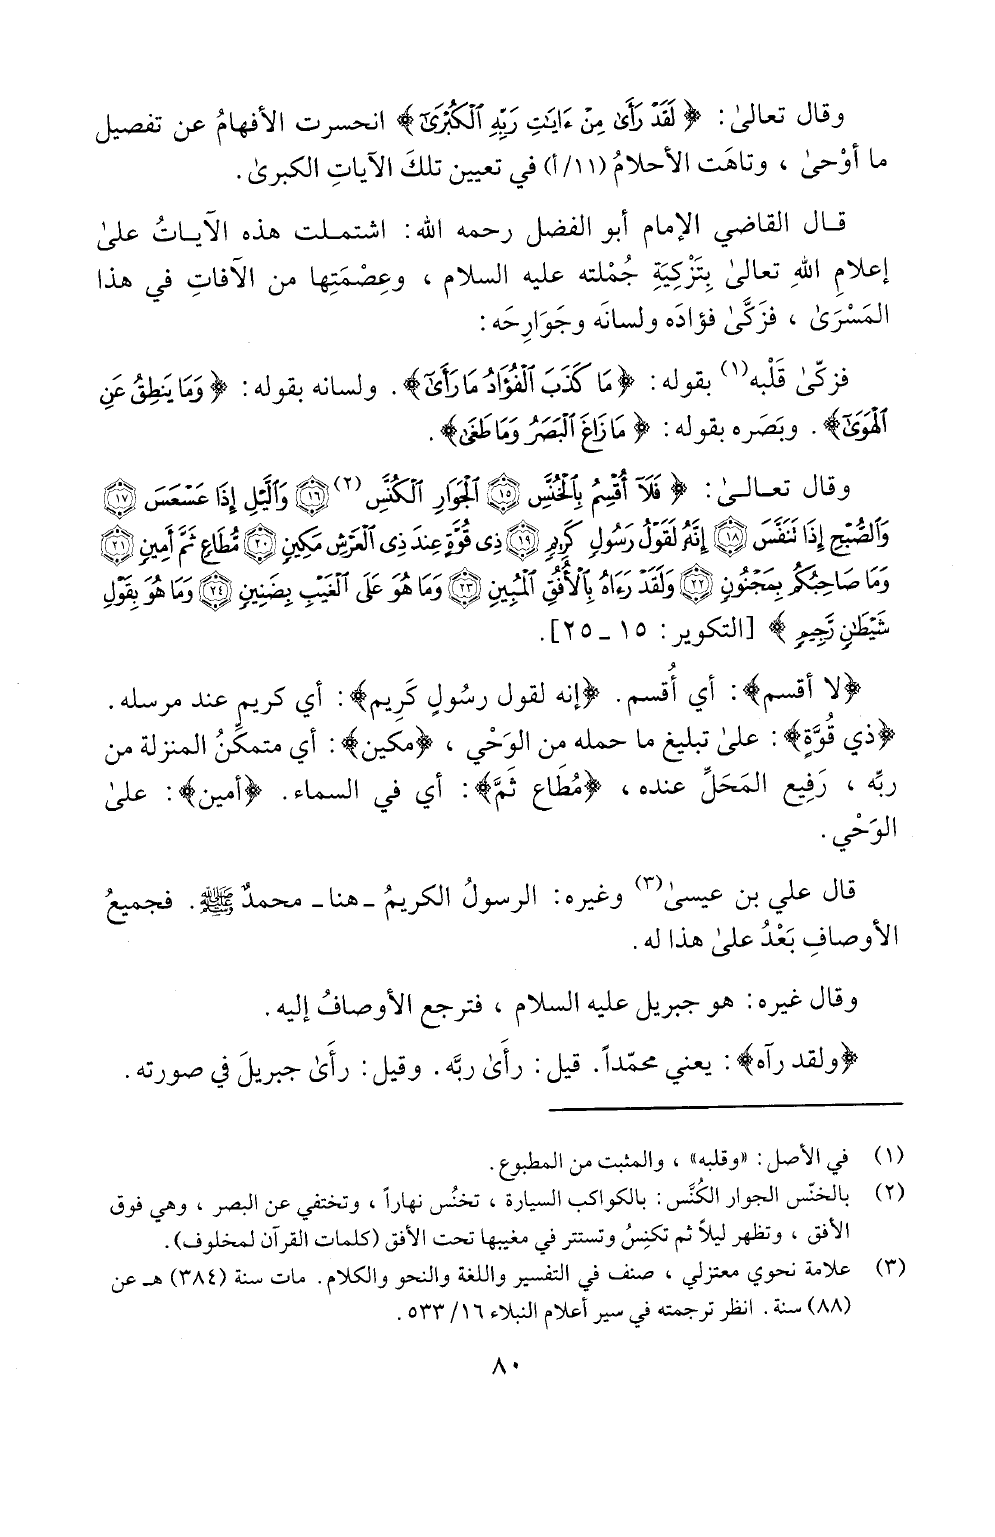 وقال تعالىٰ: ﴿ لَقَدْ رَأَىٰ مِنْ ءَايَٰتِ رَبِّهِ ٱلْكُبْرَىٰٓ ﴾ انحسرت الأفهامُ عن تفصيل
ما أوْحىٰ ، وتاهَت الأحلامُ (١١/أ) في تعيين تلكَ الآياتِ الكبرىٰ.
قـال القاضي الإمام أبو الفضل رحمه الله: اشتمـلت هذه الآيـاتُ علىٰ
إعلامِ اللهِ تعالىٰ بِتَزْكِيَةِ جُمْلته عليه السلام ، وعِصْمَتِها من الآفاتِ في هذا
المَسْرَىٰ ، فزَكَّىٰ فؤادَه ولسانَه وجَوَارِحَه:
فزكّىٰ قَلْبه(١) بقوله: ﴿ مَا كَذَبَ ٱلْفُؤَادُ مَا رَأَىٰٓ ﴾. ولسانه بقوله: ﴿ وَمَا يَنطِقُ عَنِ
ٱلْهَوَىٰٓ ﴾. وبَصَره بقوله: ﴿ مَا زَاغَ ٱلْبَصَرُ وَمَا طَغَىٰ ﴾.
وقال تعـالـىٰ: ﴿ فَلَآ أُقْسِمُ بِٱلْخُنَّسِ ١٥ ٱلْجَوَارِ ٱلْكُنَّسِ (٢) ١٦ وَٱلَّيْلِ إِذَا عَسْعَسَ ١٧
وَٱلصُّبْحِ إِذَا تَنَفَّسَ ١٨ إِنَّهُۥ لَقَوْلُ رَسُولٍ كَرِيمٍ ١٩ ذِى قُوَّةٍ عِندَ ذِى ٱلْعَرْشِ مَكِينٍ ٢٠ مُّطَاعٍ ثَمَّ أَمِينٍ ٢١
وَمَا صَاحِبُكُم بِمَجْنُونٍ ٢٢ وَلَقَدْ رَءَاهُ بِٱلْأُفُقِ ٱلْمُبِينِ ٢٣ وَمَا هُوَ عَلَى ٱلْغَيْبِ بِضَنِينٍ ٢٤ وَمَا هُوَ بِقَوْلِ
شَيْطَٰنٍ رَّجِيمٍ ﴾ [التكوير: ١٥ ـ ٢٥].
﴿لا أقسم﴾: أي أُقسم. ﴿إنه لقول رسُولٍ كَرِيم﴾: أي كريمٍ عند مرسله.
﴿ذي قُوَّةٍ﴾: علىٰ تبليغ ما حمله من الوَحْي ، ﴿مكين﴾: أي متمكنُ المنزلة من
ربِّه ، رَفِيع المَحَلِّ عنده ، ﴿مُطَاع ثَمَّ﴾: أي في السماء. ﴿أمين﴾: علىٰ
الوَحْي.
قال علي بن عيسىٰ(٣) وغيره: الرسولُ الكريمُ ـ هنا ـ محمدٌ ﷺ. فجميعُ
الأوصافِ بَعْدُ علىٰ هذا له.
وقال غيره: هو جبريل عليه السلام ، فترجع الأوصافُ إليه.
﴿ولقد رآه﴾: يعني محمّداً. قيل: رأَىٰ ربَّه. وقيل: رأَىٰ جبريلَ في صورته.
(١) في الأصل: «وقلبه» ، والمثبت من المطبوع.
(٢) بالخنّس الجوار الكُنَّس: بالكواكب السيارة ، تخنُس نهاراً ، وتختفي عن البصر ، وهي فوق
الأفق ، وتظهر ليلاً ثم تكنِسُ وتستتر في مغيبها تحت الأفق (كلمات القرآن لمخلوف).
(٣) علامة نحوي معتزلي ، صنف في التفسير واللغة والنحو والكلام. مات سنة (٣٨٤) هـ عن
(٨٨) سنة. انظر ترجمته في سير أعلام النبلاء ١٦/ ٥٣٣.
٨٠